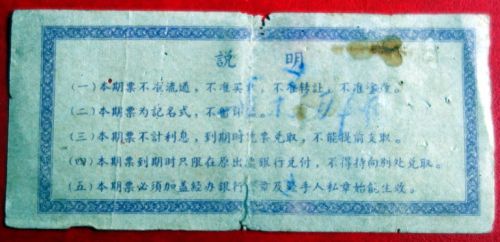 說明
(一)本期票不准流通,不准买卖,不准转让,不准涂改。
(二)本期票为记名式,不
(三)本期票不计利息,到期时凭票兑取,不能提前支取。
(四)本期票到期时只限在原出票银行兑付,不得持向别处兑取。
(五)本期票必须加盖经办银行 章及经手人私章始能生效。